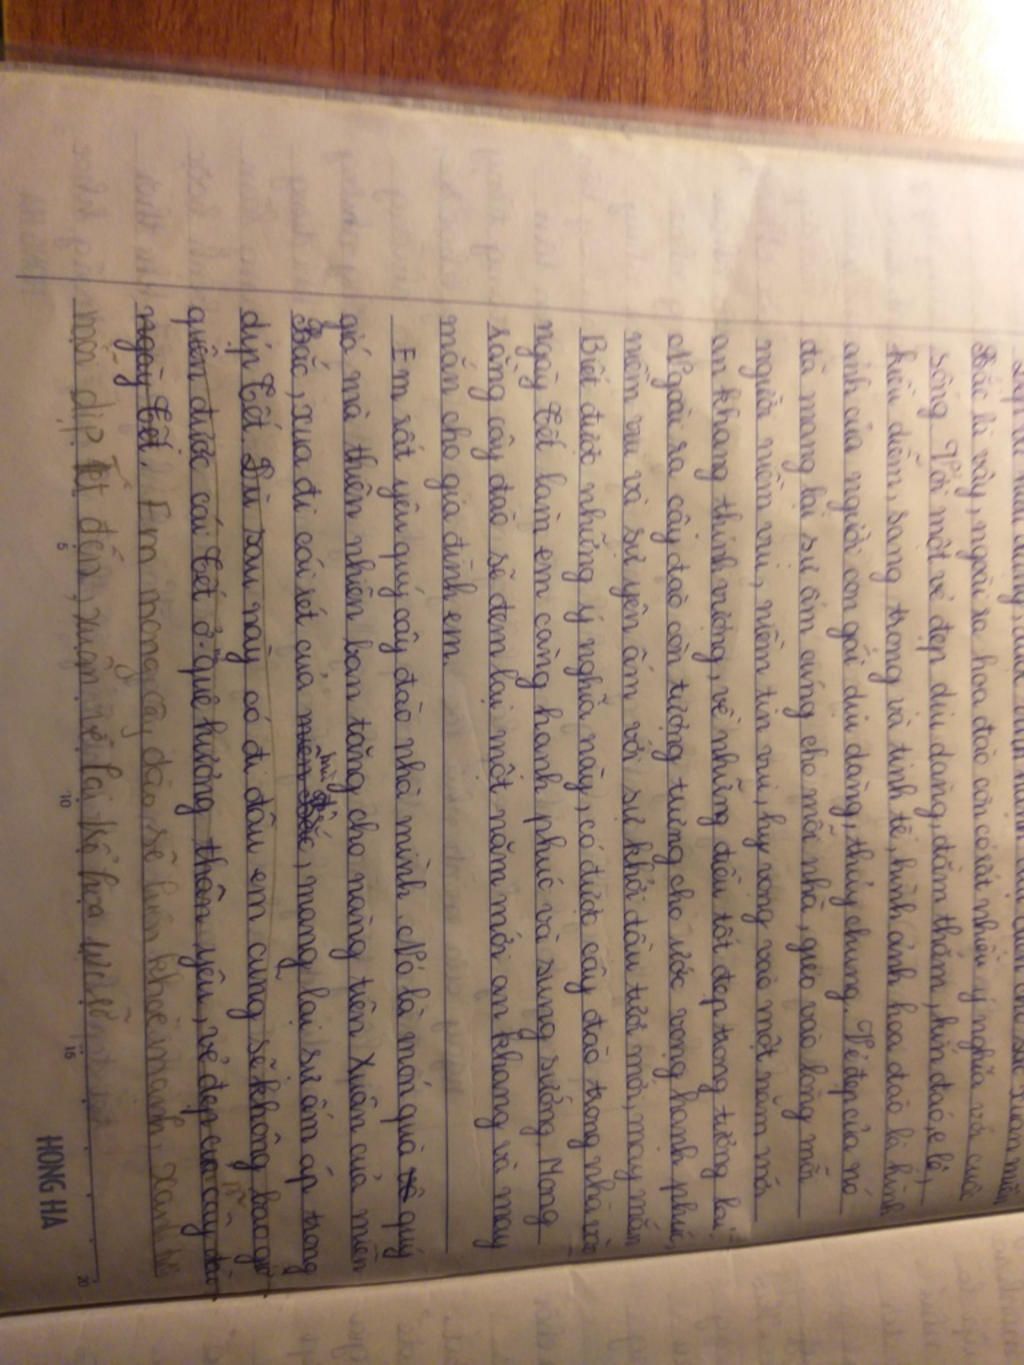 Bắc là vậy, ngoài ra hoa đào còn có rất nhiều ý nghĩa với cuộc
sống. Với một vẻ đẹp dịu dàng, đằm thắm, kín đáo, e lệ,
kiều diễm, sang trọng và tinh tế, hình ảnh hoa đào là hình
ảnh của người con gái dịu dàng, thủy chung. Vẻ đẹp của nó
đã mang lại sự ấm cúng cho mỗi nhà, gieo vào lòng mỗi
người niềm vui, niềm tin vui, hy vọng vào một năm mới
an khang thịnh vượng, về những điều tốt đẹp trong tương lai.
Ngoài ra cây đào còn tượng trưng cho ước vọng hạnh phúc,
niềm vui và sự yên ấm với sự khởi đầu tươi mới, may mắn
Biết được những ý nghĩa này, có được cây đào trong nhà vào
ngày Tết làm em càng hạnh phúc và sung sướng. Mong
rằng cây đào sẽ đem lại một năm mới an khang và may
mắn cho gia đình em.
Em rất yêu quý cây đào nhà mình. Nó là món quà quý
giá mà thiên nhiên ban tặng cho nàng tiên Xuân của miền
Bắc, xua đi cái rét của miền Bắc, mang lại sự ấm áp trong
dịp Tết. Dù sau này có đi đâu em cũng sẽ không bao giờ
quên được cái Tết ở quê hương thân yêu, vẻ đẹp của cây đào
ngày Tết. Em mong cây đào sẽ luôn khỏe mạnh, xanh
mỗi dịp Tết đến, xuân về lại
5 10 15 20
HONG HA